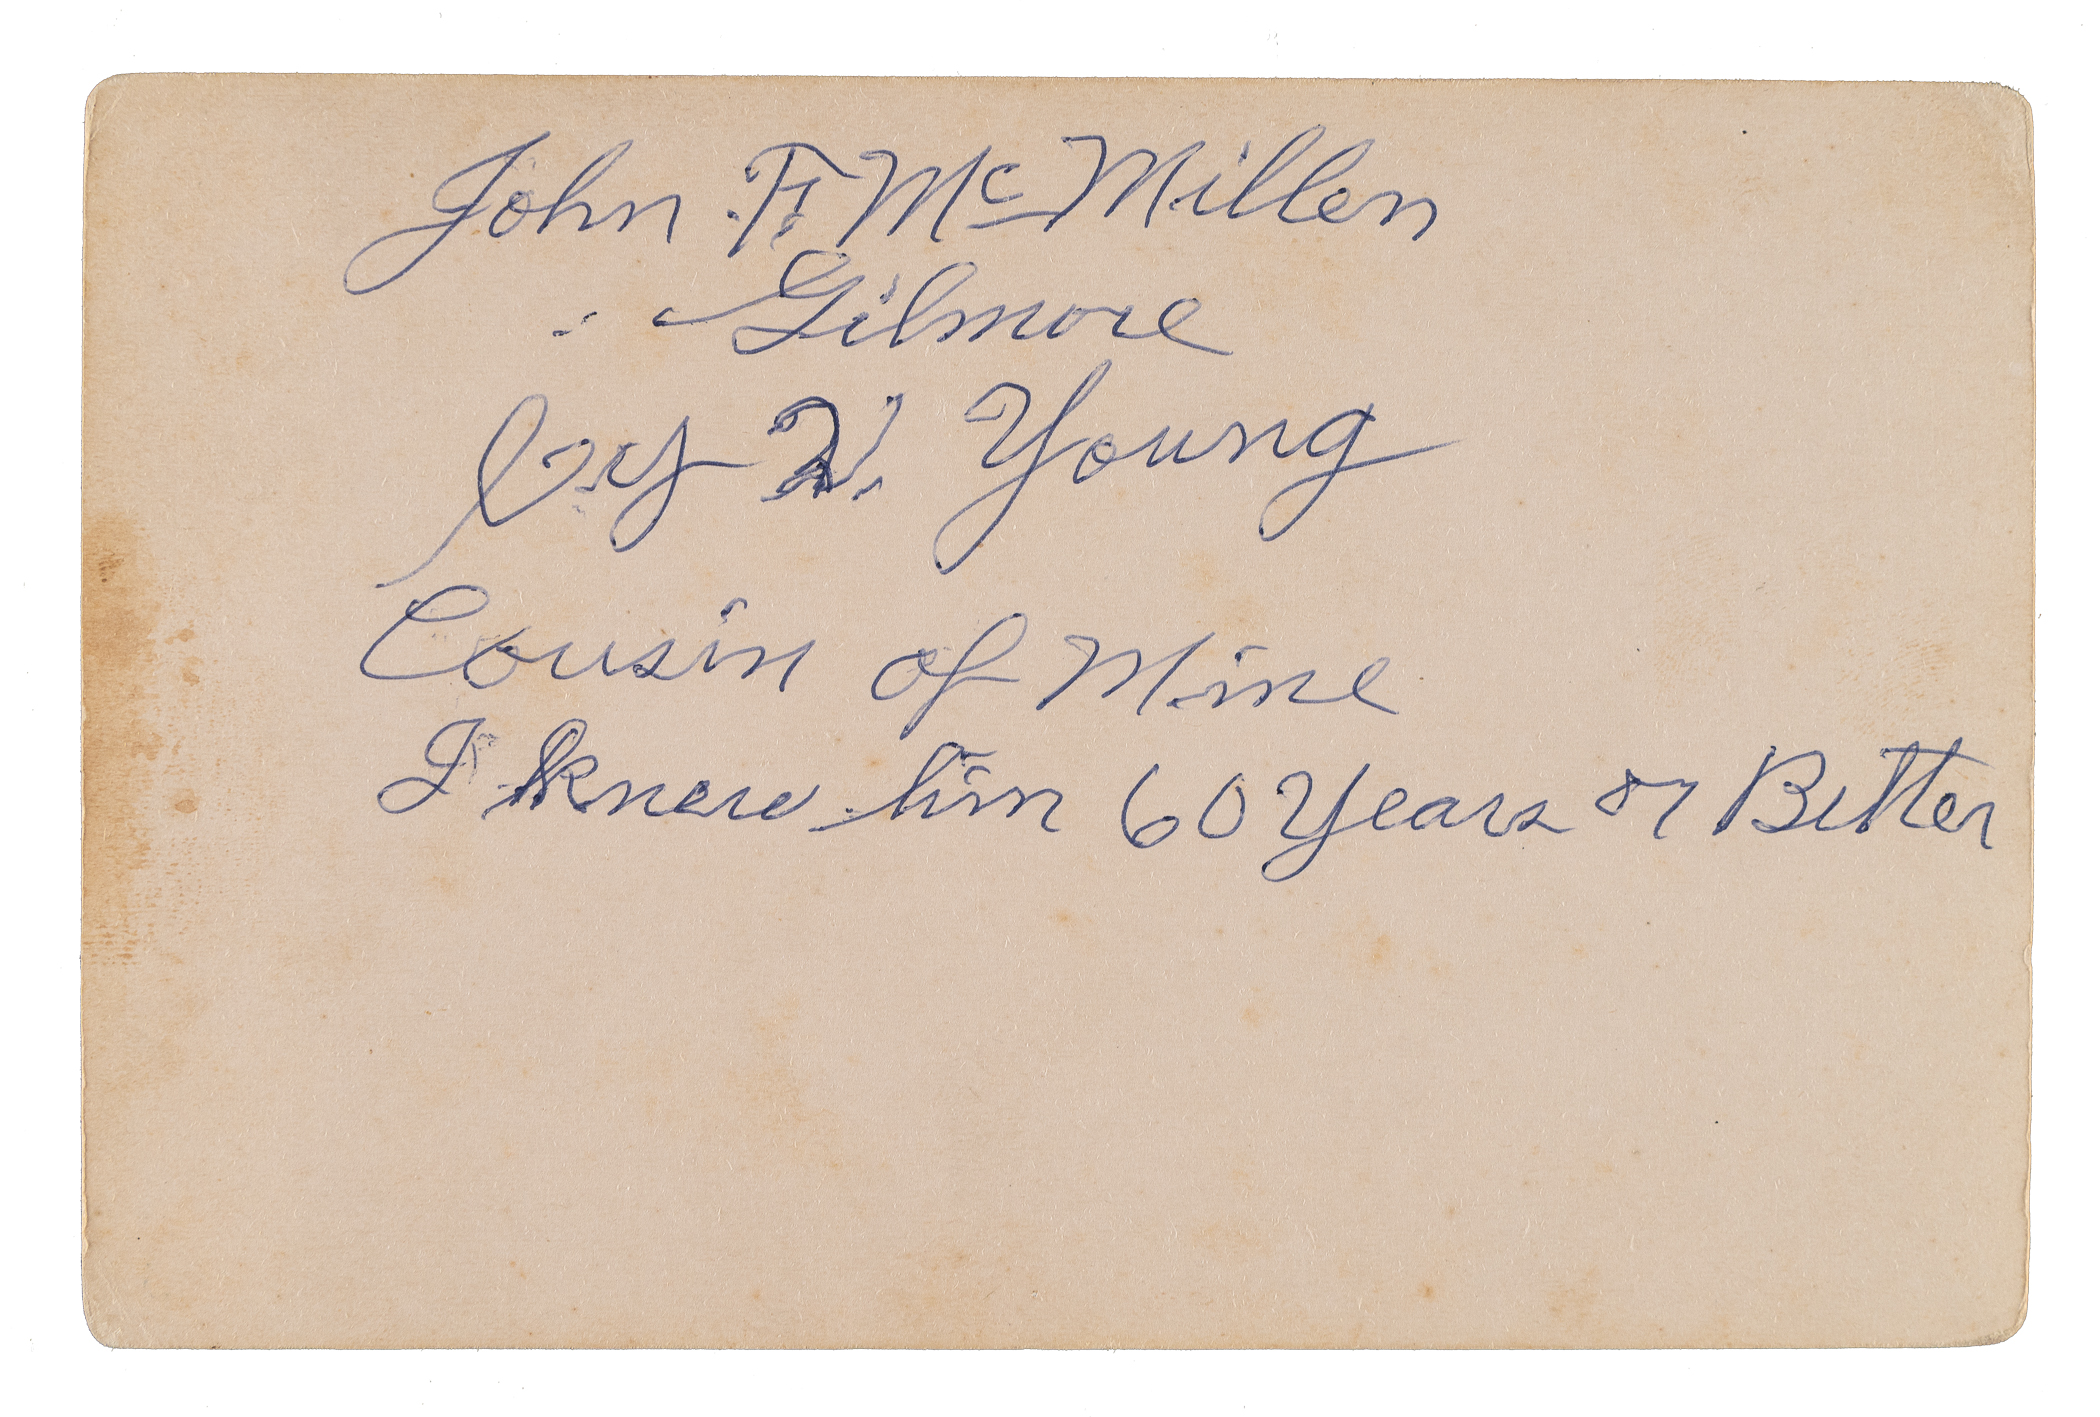 John F. McMillen
Gilmore
by W. Young
Cousin of Mine
I knew him 60 Years or Better